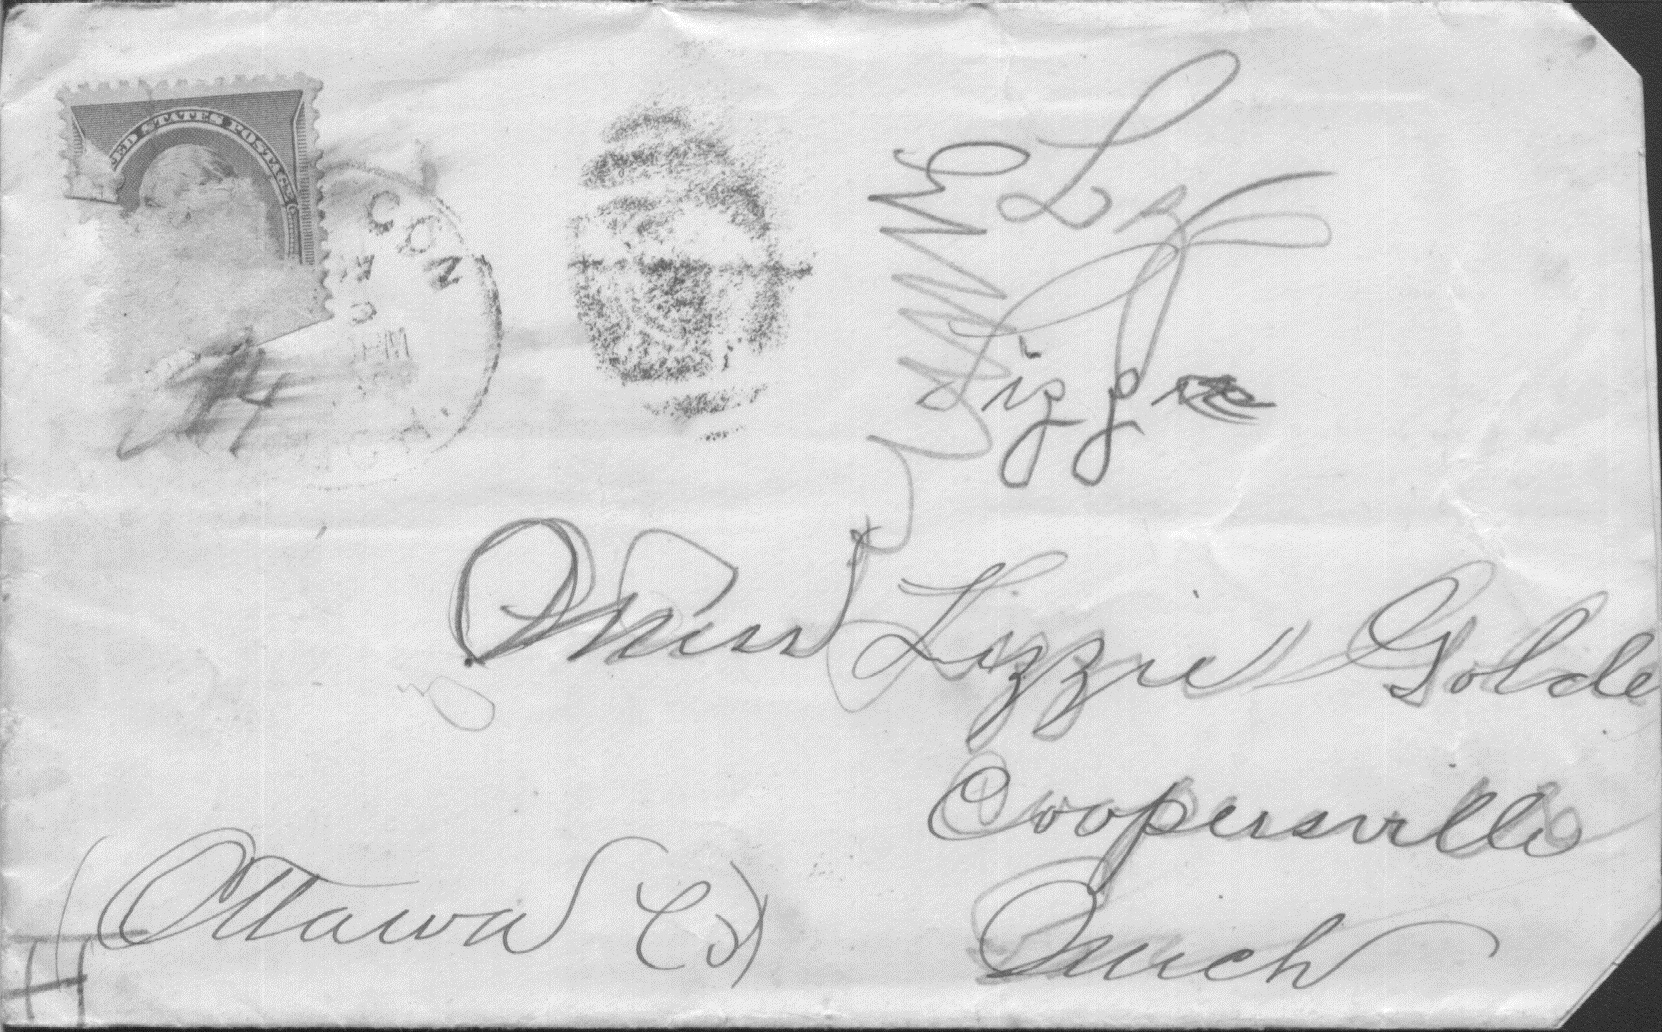 ED STATES POSTAGE
CON
Liz
Lizzie
Miss Lizzie Golde
Coopersville
Ottawa Co)
Mich